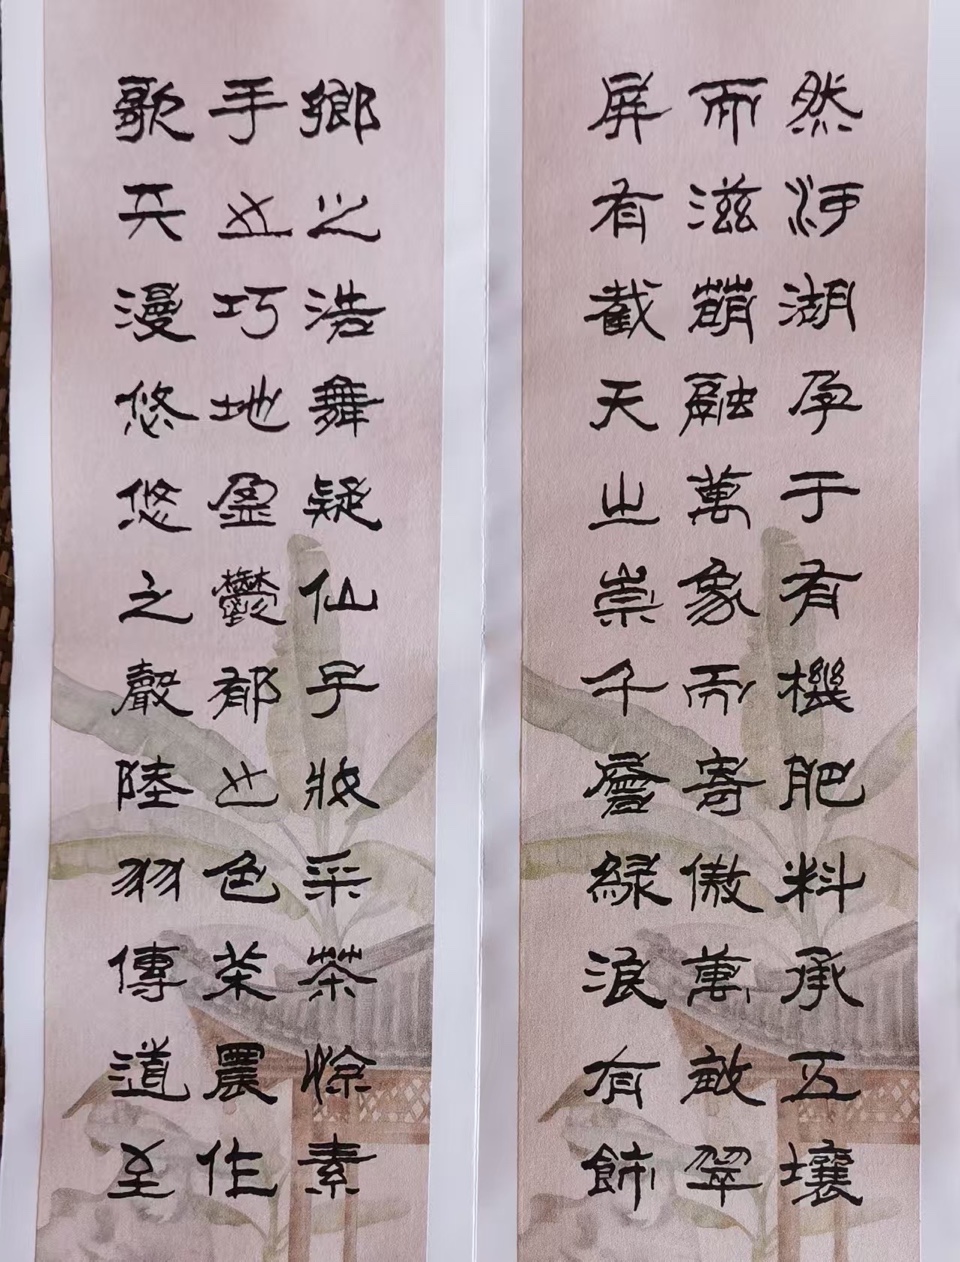 然河湖孕于有機肥料承五壤
而滋萌融萬象而寄傲萬畝翠
屏有截天之崇千層綠浪有飾
鄉之浩舞疑仙乎妝采茶素
手之巧地盈鬱郁之色茶農作
歌漫悠悠之聲陸羽傳道至